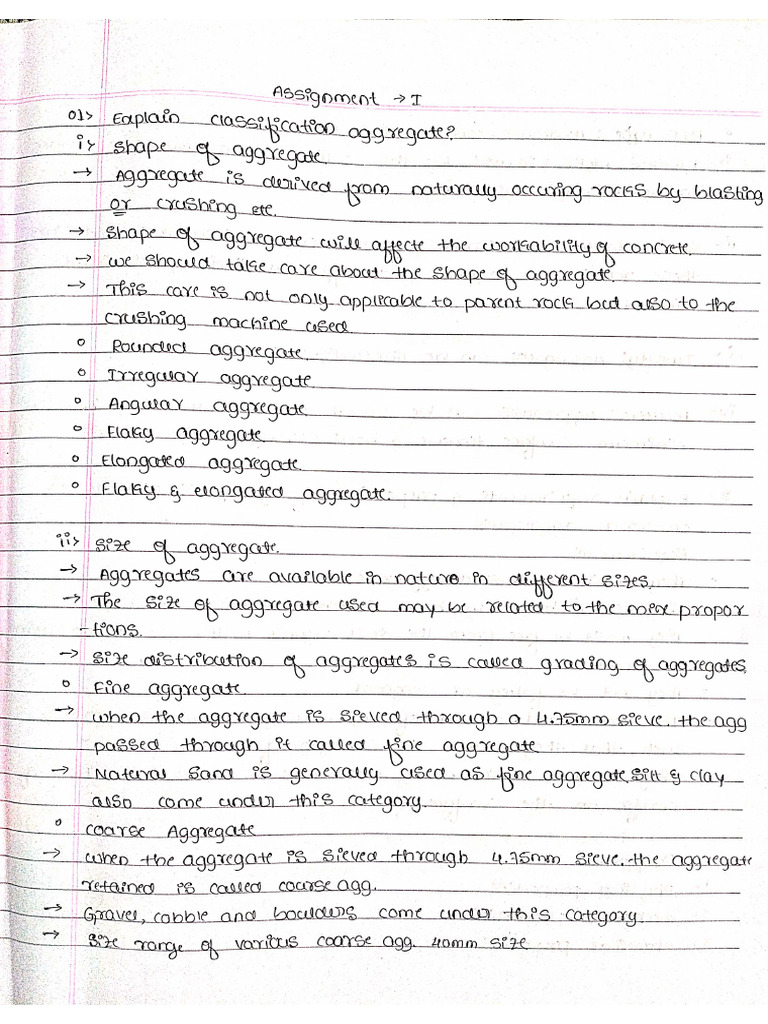 Assignment → I
01> Explain classification aggregate?
i> Shape of aggregate.
→ Aggregate is derived from naturally occuring rocks by blasting
or crushing etc.
→ Shape of aggregate will affecte the workability of concrete.
→ we should take care about the shape of aggregate.
→ This care is not only applicable to parent rock but also to the
crushing machine used.
o Rounded aggregate.
o Irregular aggregate.
o Angular aggregate
o Flaky aggregate.
o Elongated aggregate.
o Flaky & elongated aggregate.
ii> Size of aggregate.
→ Aggregates are available in nature in different sizes.
→ The size of aggregate used may be related to the mix propor
-tions.
→ Size distribution of aggregates is called grading of aggregates.
o Fine aggregate.
→ when the aggregate is sieved through a 4.75mm sieve. the agg
passed through it called fine aggregate
→ Natural sand is generally used as fine aggregate, silt & clay
also come under this category.
o Coarse Aggregate
→ when the aggregate is sieved through 4.75mm sieve. the aggregate
retained is called coarse agg.
→ Gravel, cobble and boulders come under this category.
→ Size range of various coarse agg. 40mm size